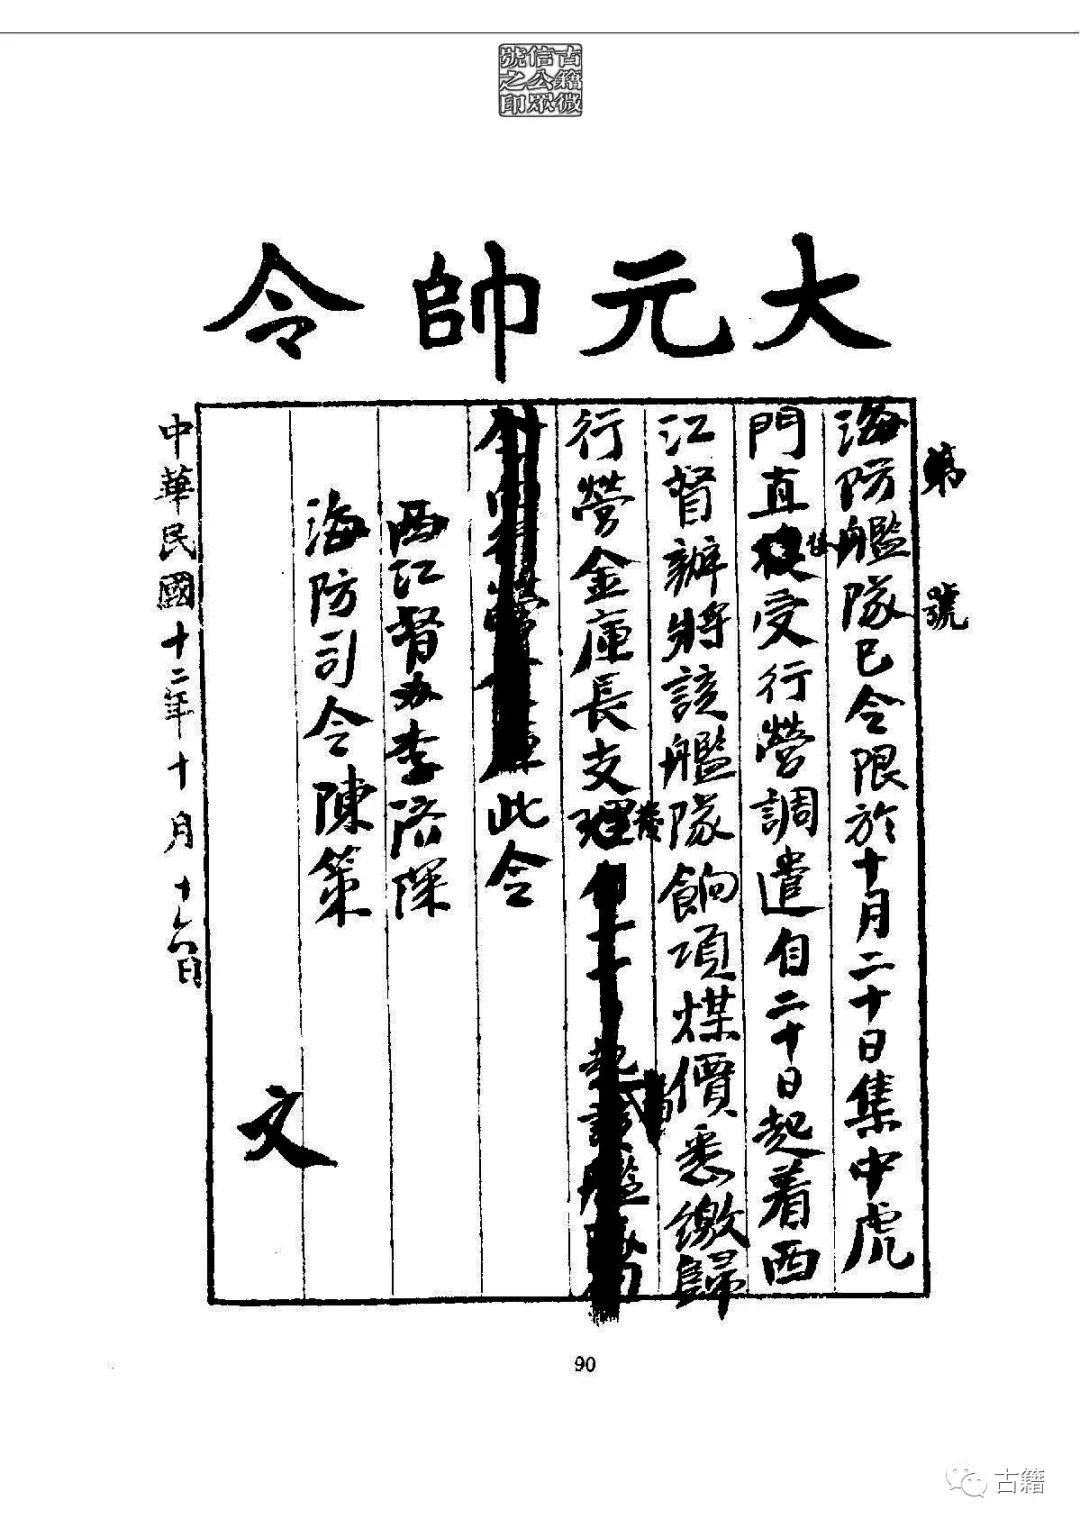 古籍微
信公眾
號之印
大元帥令
第 號
海防艦隊已令限於十月二十日集中虎
門直接受行營調遣自二十日起着西
江督辦將該艦隊餉項煤價悉繳歸
行營金庫長支發
此令
西江督办李济深
海防司令陳策
文
中華民國十二年十月十六日
90
古籍